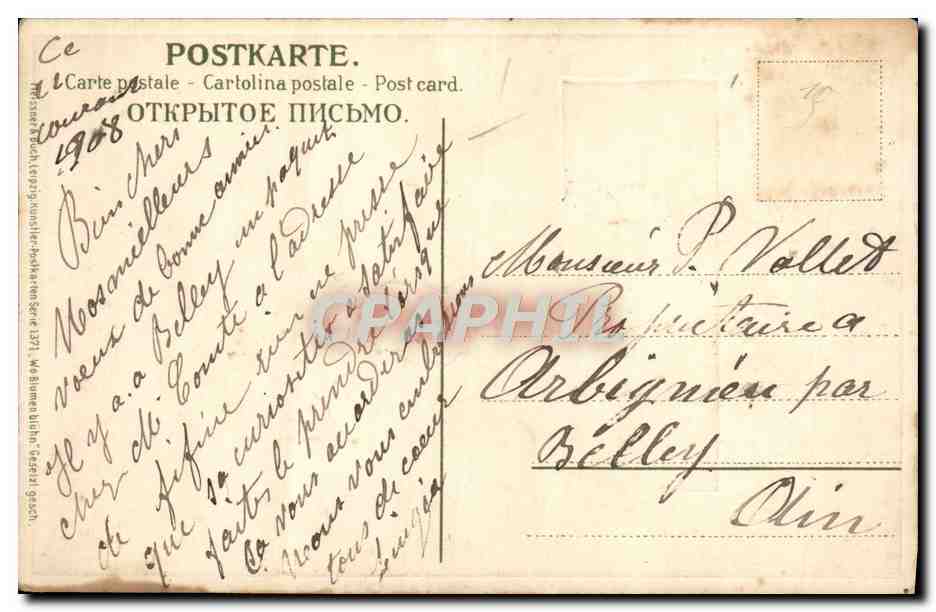 POSTKARTE.
Carte postale - Cartolina postale - Post card.
ОТКРЫТОЕ ПИСЬМО.
Meissner & Buch, Leipzig, Künstler-Postkarten Serie 1371 „Wo Blumen blühn" Gesetzl. gesch.
Ce
21
courant
1908
Bien chers
Nos meilleurs
voeux de bonne année.
Il y a a Belley un paquet
chez M. Comte a l'adresse
de fifine sur ce presse
que sa curiosité a satisfaire
faites le prendre dès que
ça vous
nous vous embrassons
tous de coeur
Monsieur P. Vollet
Propriétaire a
Arbignieu par
Belley
Ain
CPAPHIL